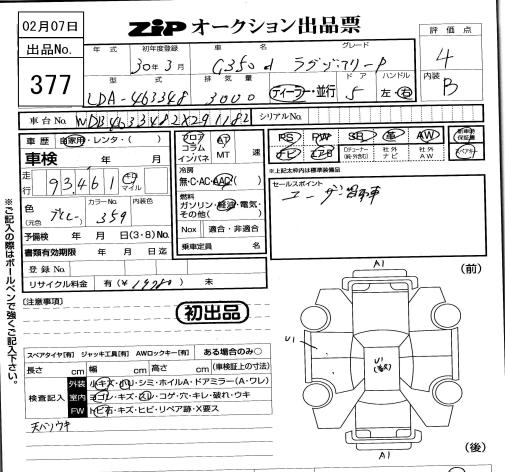 02月07日
ZIP オークション出品票
評価点
出品No.
377
年式 初年度登録 車名 グレード
30年3月 G350d ラグジュアリーP
4
型式 排気量 ドア ハンドル
LDA-463348 3000 ディーラー・並行 5 左・右
内装
B
車台No. WDB4633482X291182 シリアルNo.
車歴 自家用・レンタ・( )
フロア コラム インパネ
AT MT 速
PS PW SR 革 AW 新車時保証書
ナビ エアB Dチューナー(純・外含む) 社外ナビ 社外AW スペアキー
車検 年 月
※上記太枠内は標準装備品
走行 93,461 キロ マイル
冷房
無・C・AC・AAC
セールスポイント
ユーザー買取車
色(元色) カラーNo. 内装色
グレー 359
燃料
ガソリン・軽油・電気・その他( )
予備検 年 月 日(3・8)No.
Nox 適合・非適合
書類有効期限 年 月 日迄
乗車定員 名
登録No.
リサイクル料金 有(¥ ) 未
(前)
A1
[注意事項]
初出品
U1
U1
スペアタイヤ[有] ジャッキ工具[有] AWロックキー[有] ある場合のみ○
長さ cm 幅 cm 高さ cm (車検証上の寸法)
検査記入
外装 小キズ・小U・シミ・ホイルA・ドアミラー(A・ワレ)
室内 ヨゴレ・キズ・スレ・コゲ・穴・キレ・破れ・ウキ
FW トビ石・キズ・ヒビ・リペア跡・X要ス
天バリウキ
A1
(後)
※ご記入の際はボールペンで強くご記入下さい。